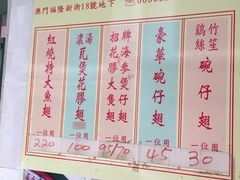 澳門福隆新街18號地下
紅燒特大魚翅
一位用
220
濃湯瓦煲花膠翅
一位用
100
牌海參煲仔翅
招花膠大隻翅
一位用
95/70
豪華碗仔翅
一位用
45
竹笙雞絲碗仔翅
一位用
30